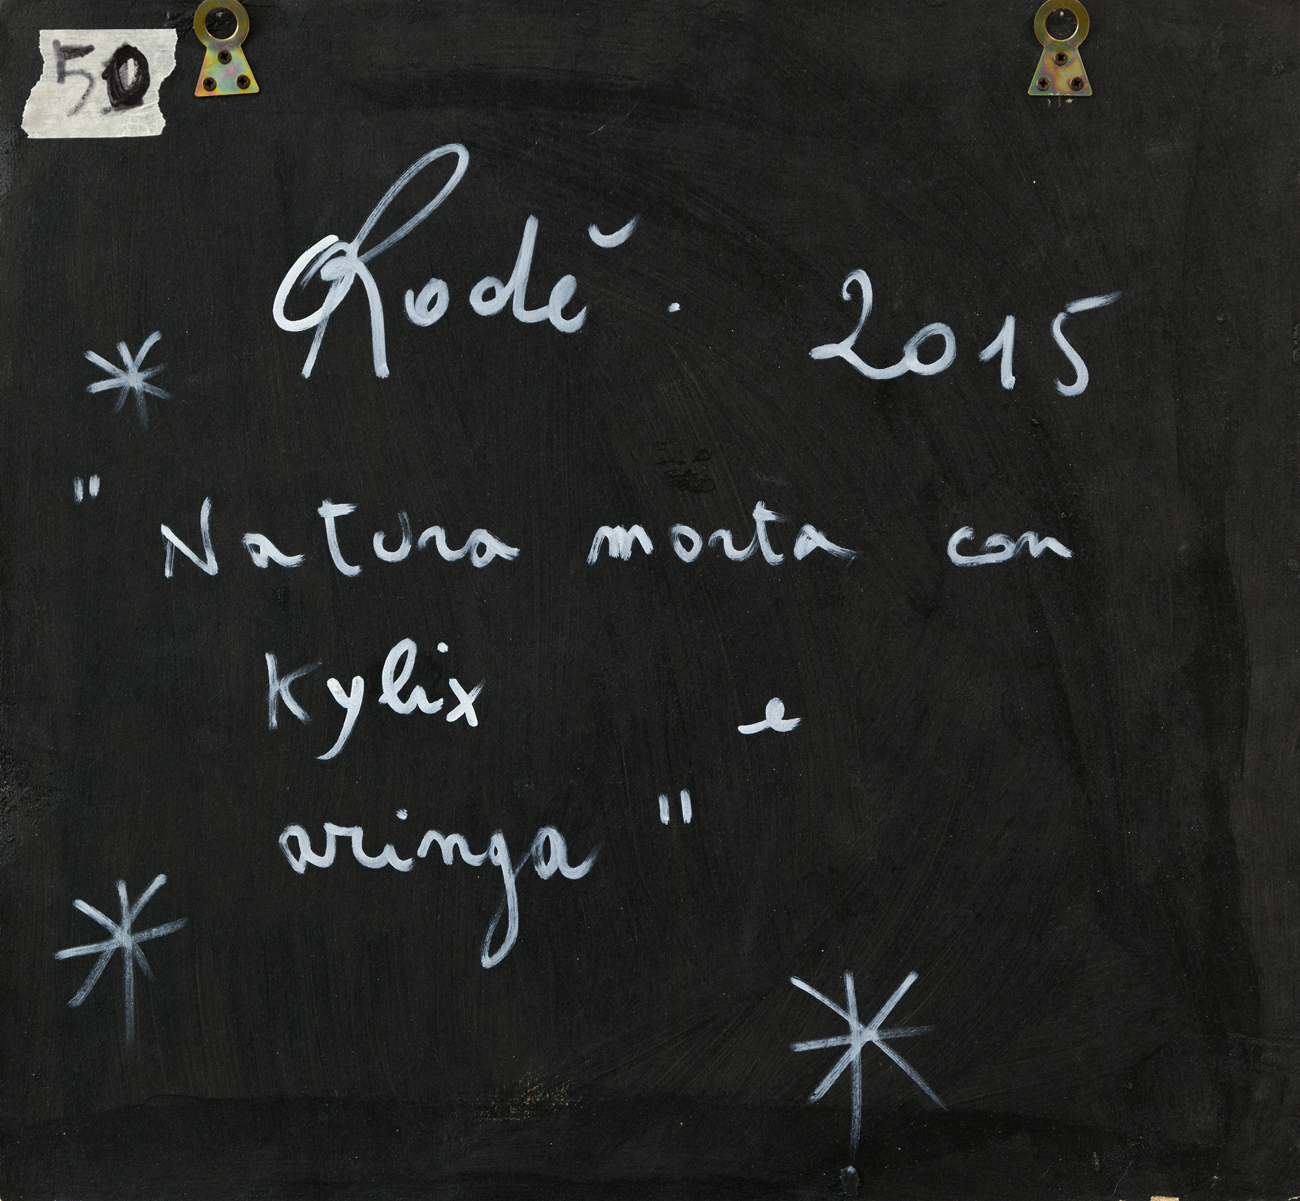 50
Rodĕ. 2015
" Natura morta con
Kylix e
aringa "